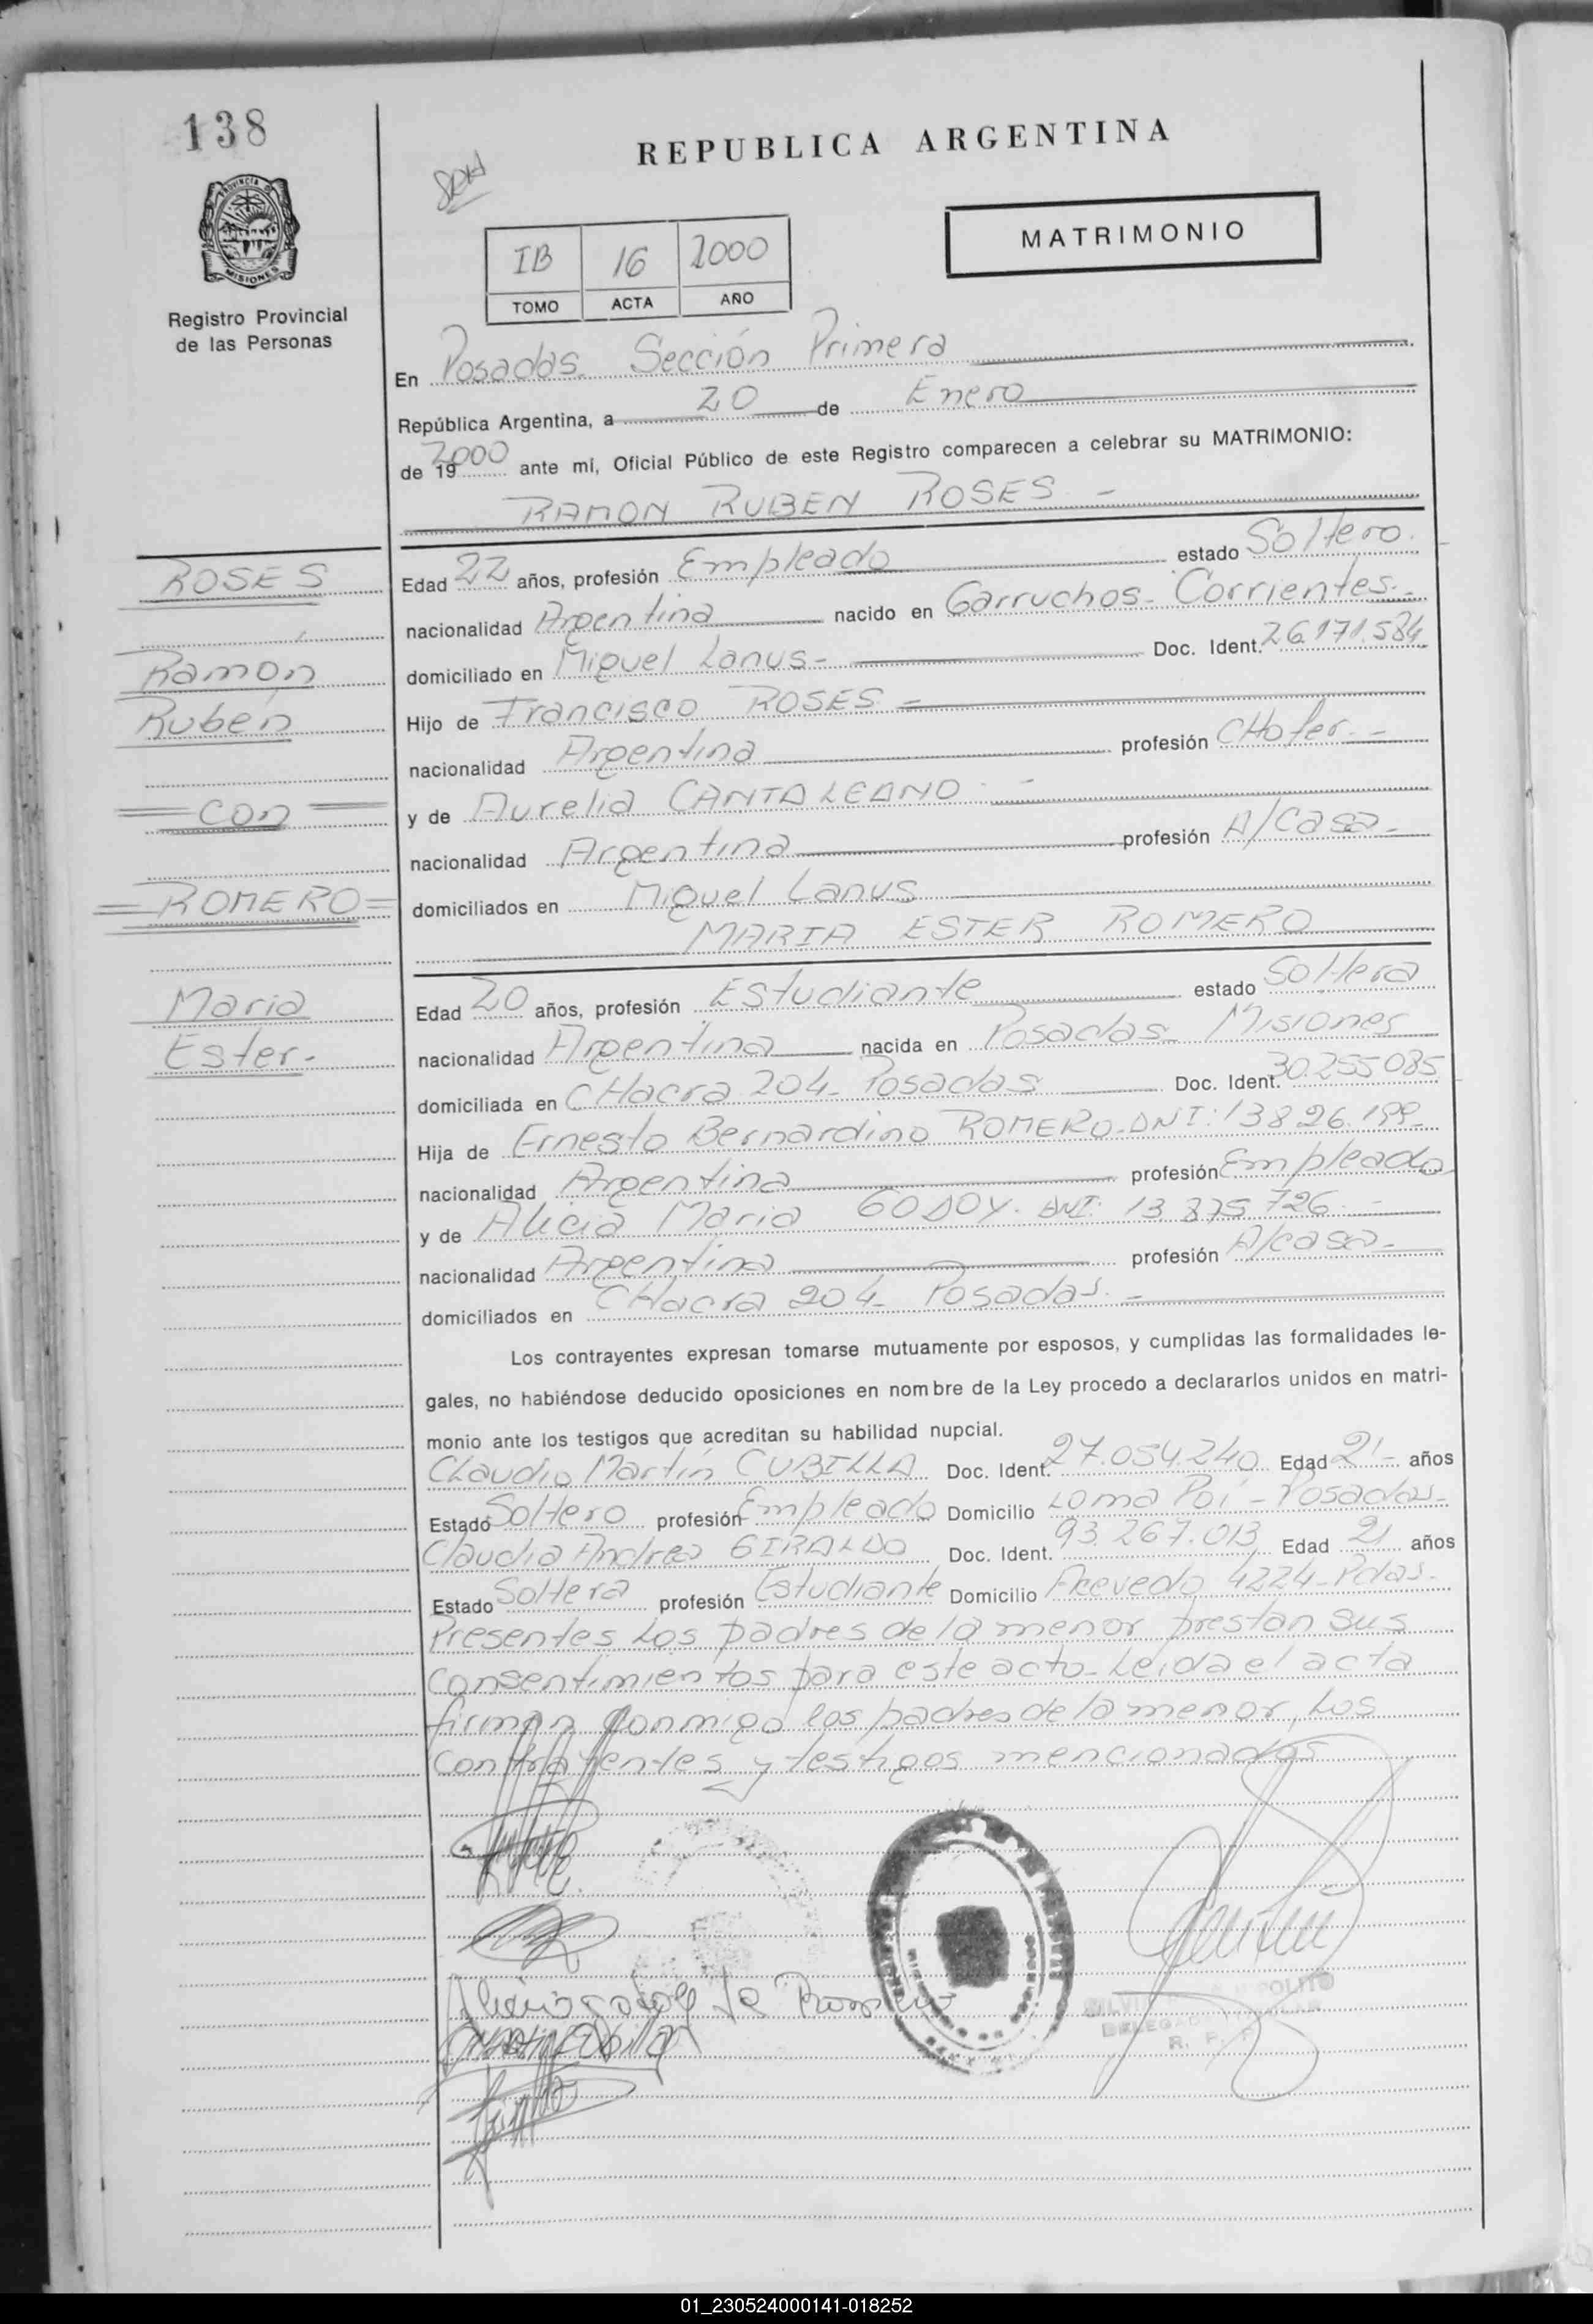 138
REPUBLICA ARGENTINA
PROVINCIA DE
MISIONES
Registro Provincial
de las Personas
MATRIMONIO
IB 16 2000
TOMO ACTA AÑO
En Posadas. Sección Primera
República Argentina, a 20 de Enero
de 19 2000 ante mí, Oficial Público de este Registro comparecen a celebrar su MATRIMONIO:
RAMON RUBEN ROSES -
ROSES
Ramón
Rubén
CON
ROMERO
Maria
Ester.-
Edad 22 años, profesión Empleado estado Soltero.
nacionalidad Argentina nacido en Garruchos- Corrientes.-
domiciliado en Miguel Lanus- Doc. Ident. 26.171.584
Hijo de Francisco ROSES -
nacionalidad Argentina profesión CHofer.-
y de Aurelia CANTALEANO -
nacionalidad Argentina profesión A/Casa-
domiciliados en Miguel Lanus
MARIA ESTER ROMERO
Edad 20 años, profesión Estudiante estado Soltera
nacionalidad Argentina nacida en Posadas- Misiones
domiciliada en CHacra 204- Posadas Doc. Ident. 30.255.085
Hija de Ernesto Bernardino ROMERO-DNI: 13896.199-
nacionalidad Argentina profesión Empleado
y de Alicia Maria GODOY. DNI: 13 875 726-
nacionalidad Argentina profesión A/casa-
domiciliados en CHacra 204- Posadas.-
Los contrayentes expresan tomarse mutuamente por esposos, y cumplidas las formalidades le-
gales, no habiéndose deducido oposiciones en nombre de la Ley procedo a declararlos unidos en matri-
monio ante los testigos que acreditan su habilidad nupcial.
Claudio Martín CUBILLA Doc. Ident. 27.054.240 Edad 21- años
Estado Soltero profesión Empleado Domicilio Loma Poi - Posadas-
Claudia Andrea GIRALDO Doc. Ident. 93.267.013 Edad 21 años
Estado Soltera profesión Estudiante Domicilio Acevedo 4224-Pdas.-
Presentes los padres de la menor prestan sus
consentimientos para este acto- Leida el acta
firman conmigo los padres de la menor, los
contrayentes y testigos mencionados
de Romero
R. P. P.
01_230524000141-018252